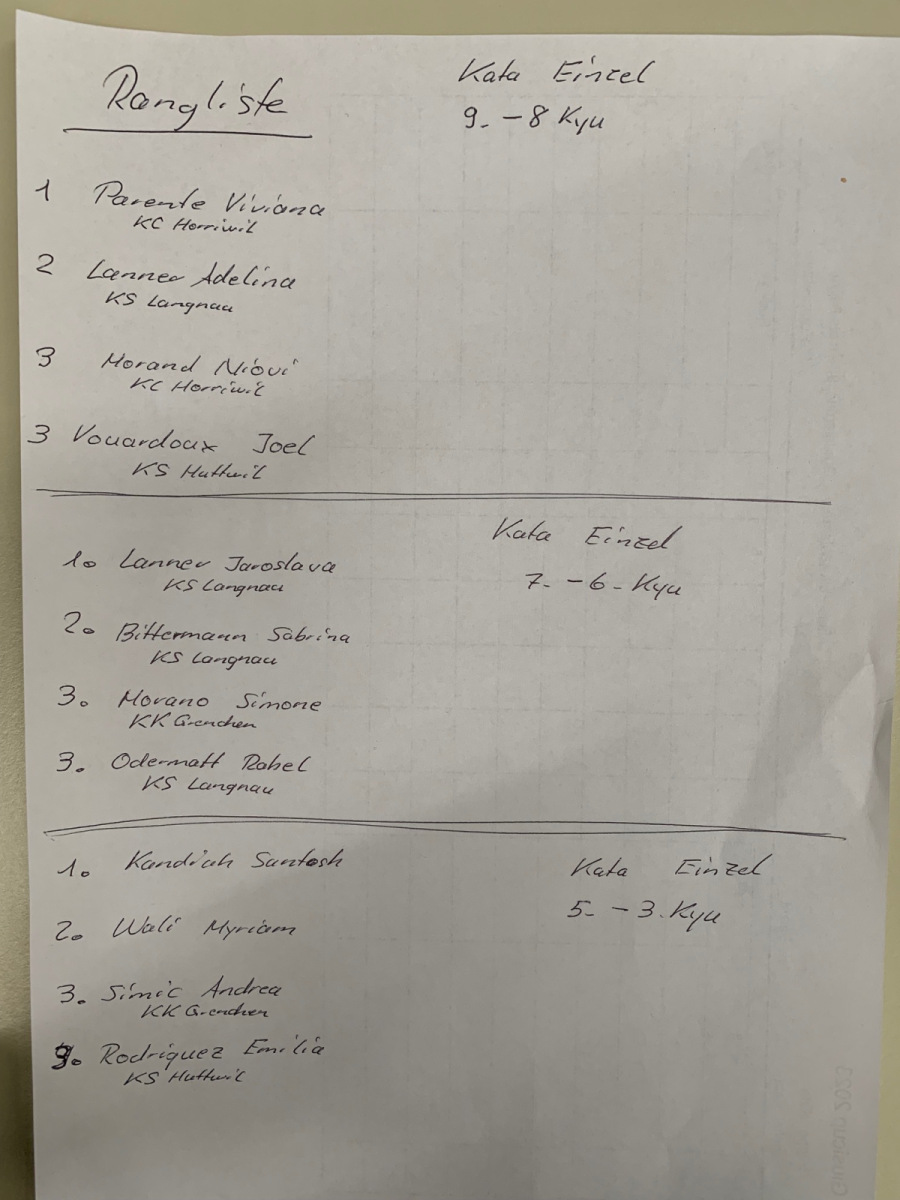 Rangliste
Kata Einzel
9. - 8 Kyu
1 Parente Viviana
KC Horriwil
2 Lanner Adelina
KS Langnau
3 Morand Niovi
KC Horriwil
3 Vouardoux Joel
KS Huttwil
Kata Einzel
7. - 6. Kyu
1. Lanner Jaroslava
KS Langnau
2. Bittermann Sabrina
KS Langnau
3. Morano Simone
KK Grenchen
3. Odermatt Rahel
KS Langnau
Kata Einzel
5. - 3. Kyu
1. Kandiah Santosh
2. Wali Myriam
3. Simic Andrea
KK Grenchen
3. Rodriquez Emilia
KS Huttwil